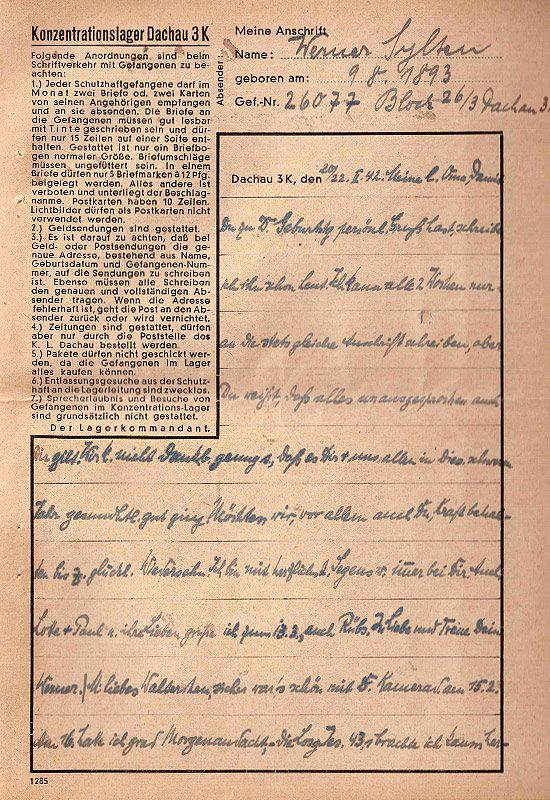 Konzentrationslager Dachau 3 K
Folgende Anordnungen sind beim
Schriftverkehr mit Gefangenen zu be-
achten:
1.) Jeder Schutzhaftgefangene darf im
Monat zwei Briefe od. zwei Karten
von seinen Angehörigen empfangen
und an sie absenden. Die Briefe an
die Gefangenen müssen gut lesbar
mit Tinte geschrieben sein und dür-
fen nur 15 Zeilen auf einer Seite ent-
halten. Gestattet ist nur ein Briefbo-
gen normaler Größe. Briefumschläge
müssen ungefüttert sein. In einem
Briefe dürfen nur 5 Briefmarken à 12 Pfg.
beigelegt werden. Alles andere ist
verboten und unterliegt der Beschlag-
nahme. Postkarten haben 10 Zeilen.
Lichtbilder dürfen als Postkarten nicht
verwendet werden.
2.) Geldsendungen sind gestattet.
3.) Es ist darauf zu achten, daß bei
Geld- oder Postsendungen die ge-
naue Adresse, bestehend aus Name,
Geburtsdatum und Gefangenen-Num-
mer, auf die Sendungen zu schreiben
ist. Ebenso müssen alle Schreiben
den genauen und vollständigen Ab-
sender tragen. Wenn die Adresse
fehlerhaft ist, geht die Post an den Ab-
sender zurück oder wird vernichtet.
4.) Zeitungen sind gestattet, dürfen
aber nur durch die Poststelle des
K. L. Dachau bestellt werden.
5.) Pakete dürfen nicht geschickt wer-
den, da die Gefangenen im Lager
alles kaufen können.
6.) Entlassungsgesuche aus der Schutz-
haft an die Lagerleitung sind zwecklos.
7.) Sprecherlaubnis und Besuche von
Gefangenen im Konzentrations-Lager
sind grundsätzlich nicht gestattet.
Der Lagerkommandant.
Absender:
Meine Anschrift
Name: Werner Sylten
geboren am: 9.8.1893
Gef.-Nr. 26077 Block 26/3 Dachau 3.
Dachau 3 K, den 20/22. II. 42. Meine l. Oma, Damit
Du zu D. Geburtstg persönl. Gruß hast, schreibe
ich ihn schon heut. Ich kann alle 2 Wochen nur
an die stets gleiche Anschrift schreiben, aber
Du weißt, daß alles unausgesprochen auch
Dir gilt. nicht dankb. genug s., daß es Dir + uns allen in dies. schweren
Jahr gesundhtl. gut ging! Möchten wir, vor allem auch Du, Kraft behal-
ten bis z. glückl. Wiedersehn. Ich bin mit herzlich. Segens immer bei Dir. Auch
Lotte + Paul u. ihre Lieben grüße ich zum 13.3., auch In Liebe und Treue Dein
Werner. M. liebes Walterchen, sicher war's schön mit D. Kamerad am 15.2.
ich grad Morgenandacht, die Jes. 43, 1 brachte ich
1285